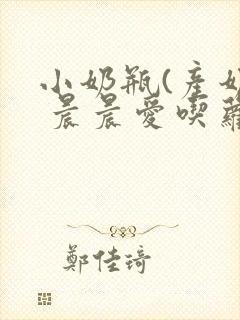 小奶瓶(產奶
晨晨愛喫蘿
鄭佳琦